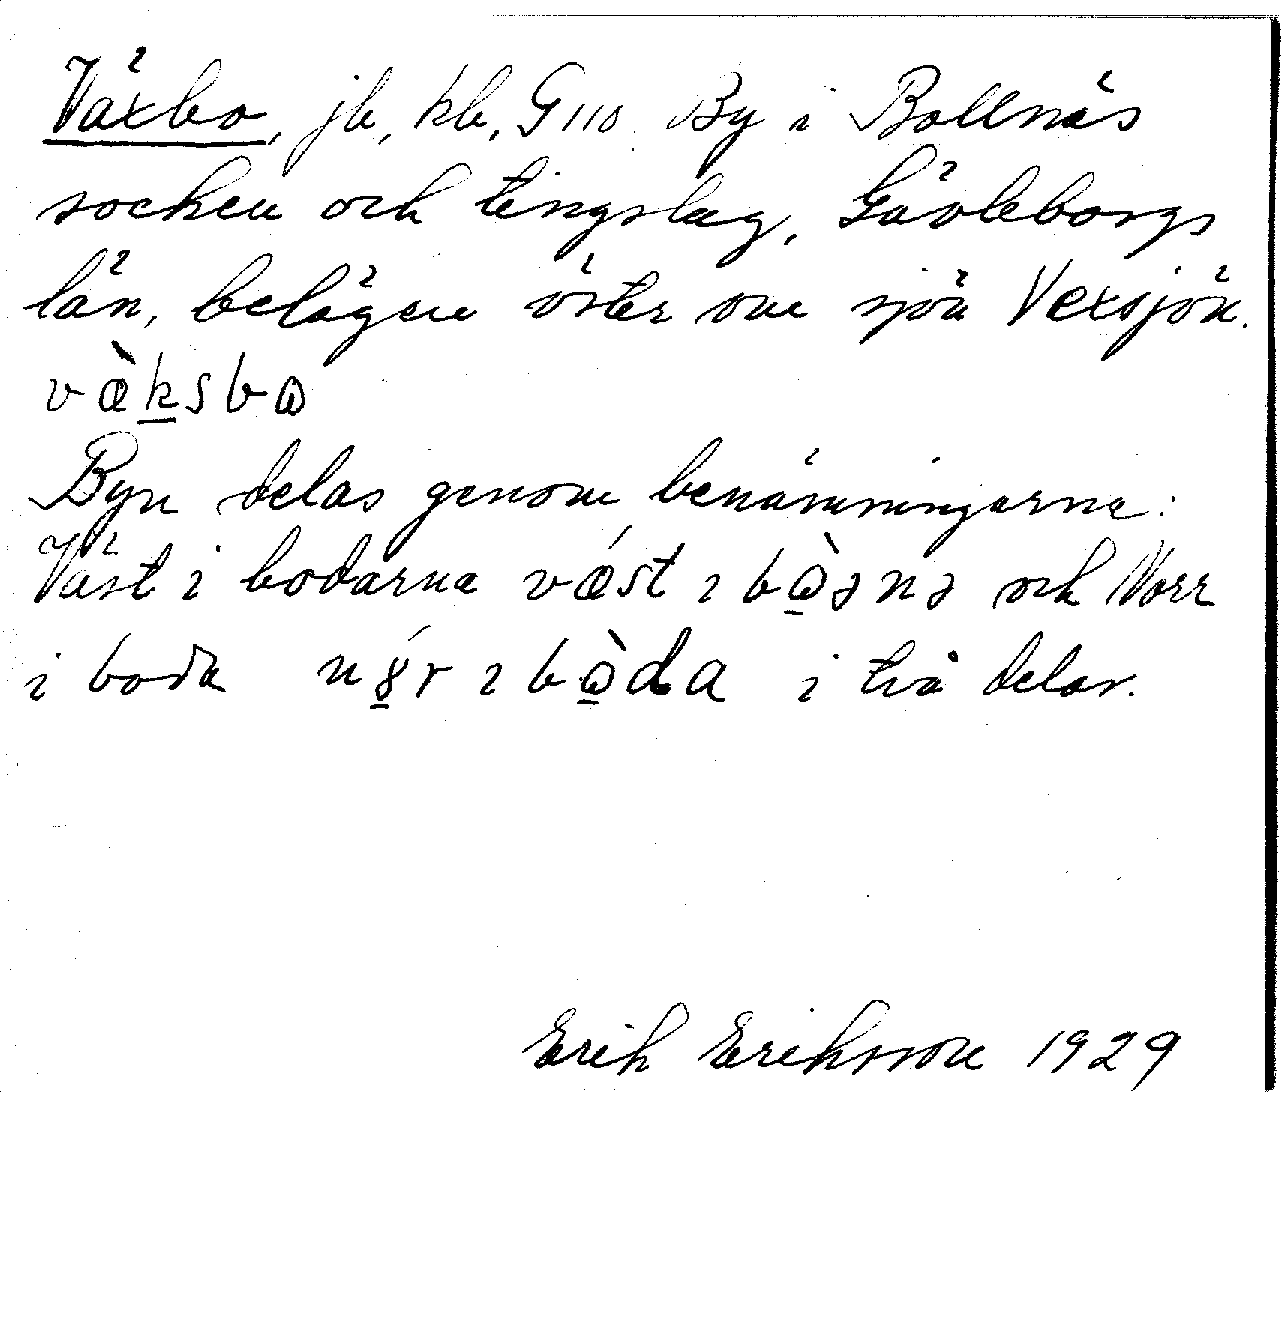 Växbo, jb, kb, G110. By i Bollnäs
socken och tingslag, Gävleborgs
län, belägen öster om sjön Vexsjön.
væ̀k̲sbɷ
Byn delas genom benämningarna:
Väst i bodarna vǽst ɩ bɷ̲̀ənə och Norr
i boda nɤ̲́r ɩ bɷ̲̀da i två delar.
Erik Eriksson 1929